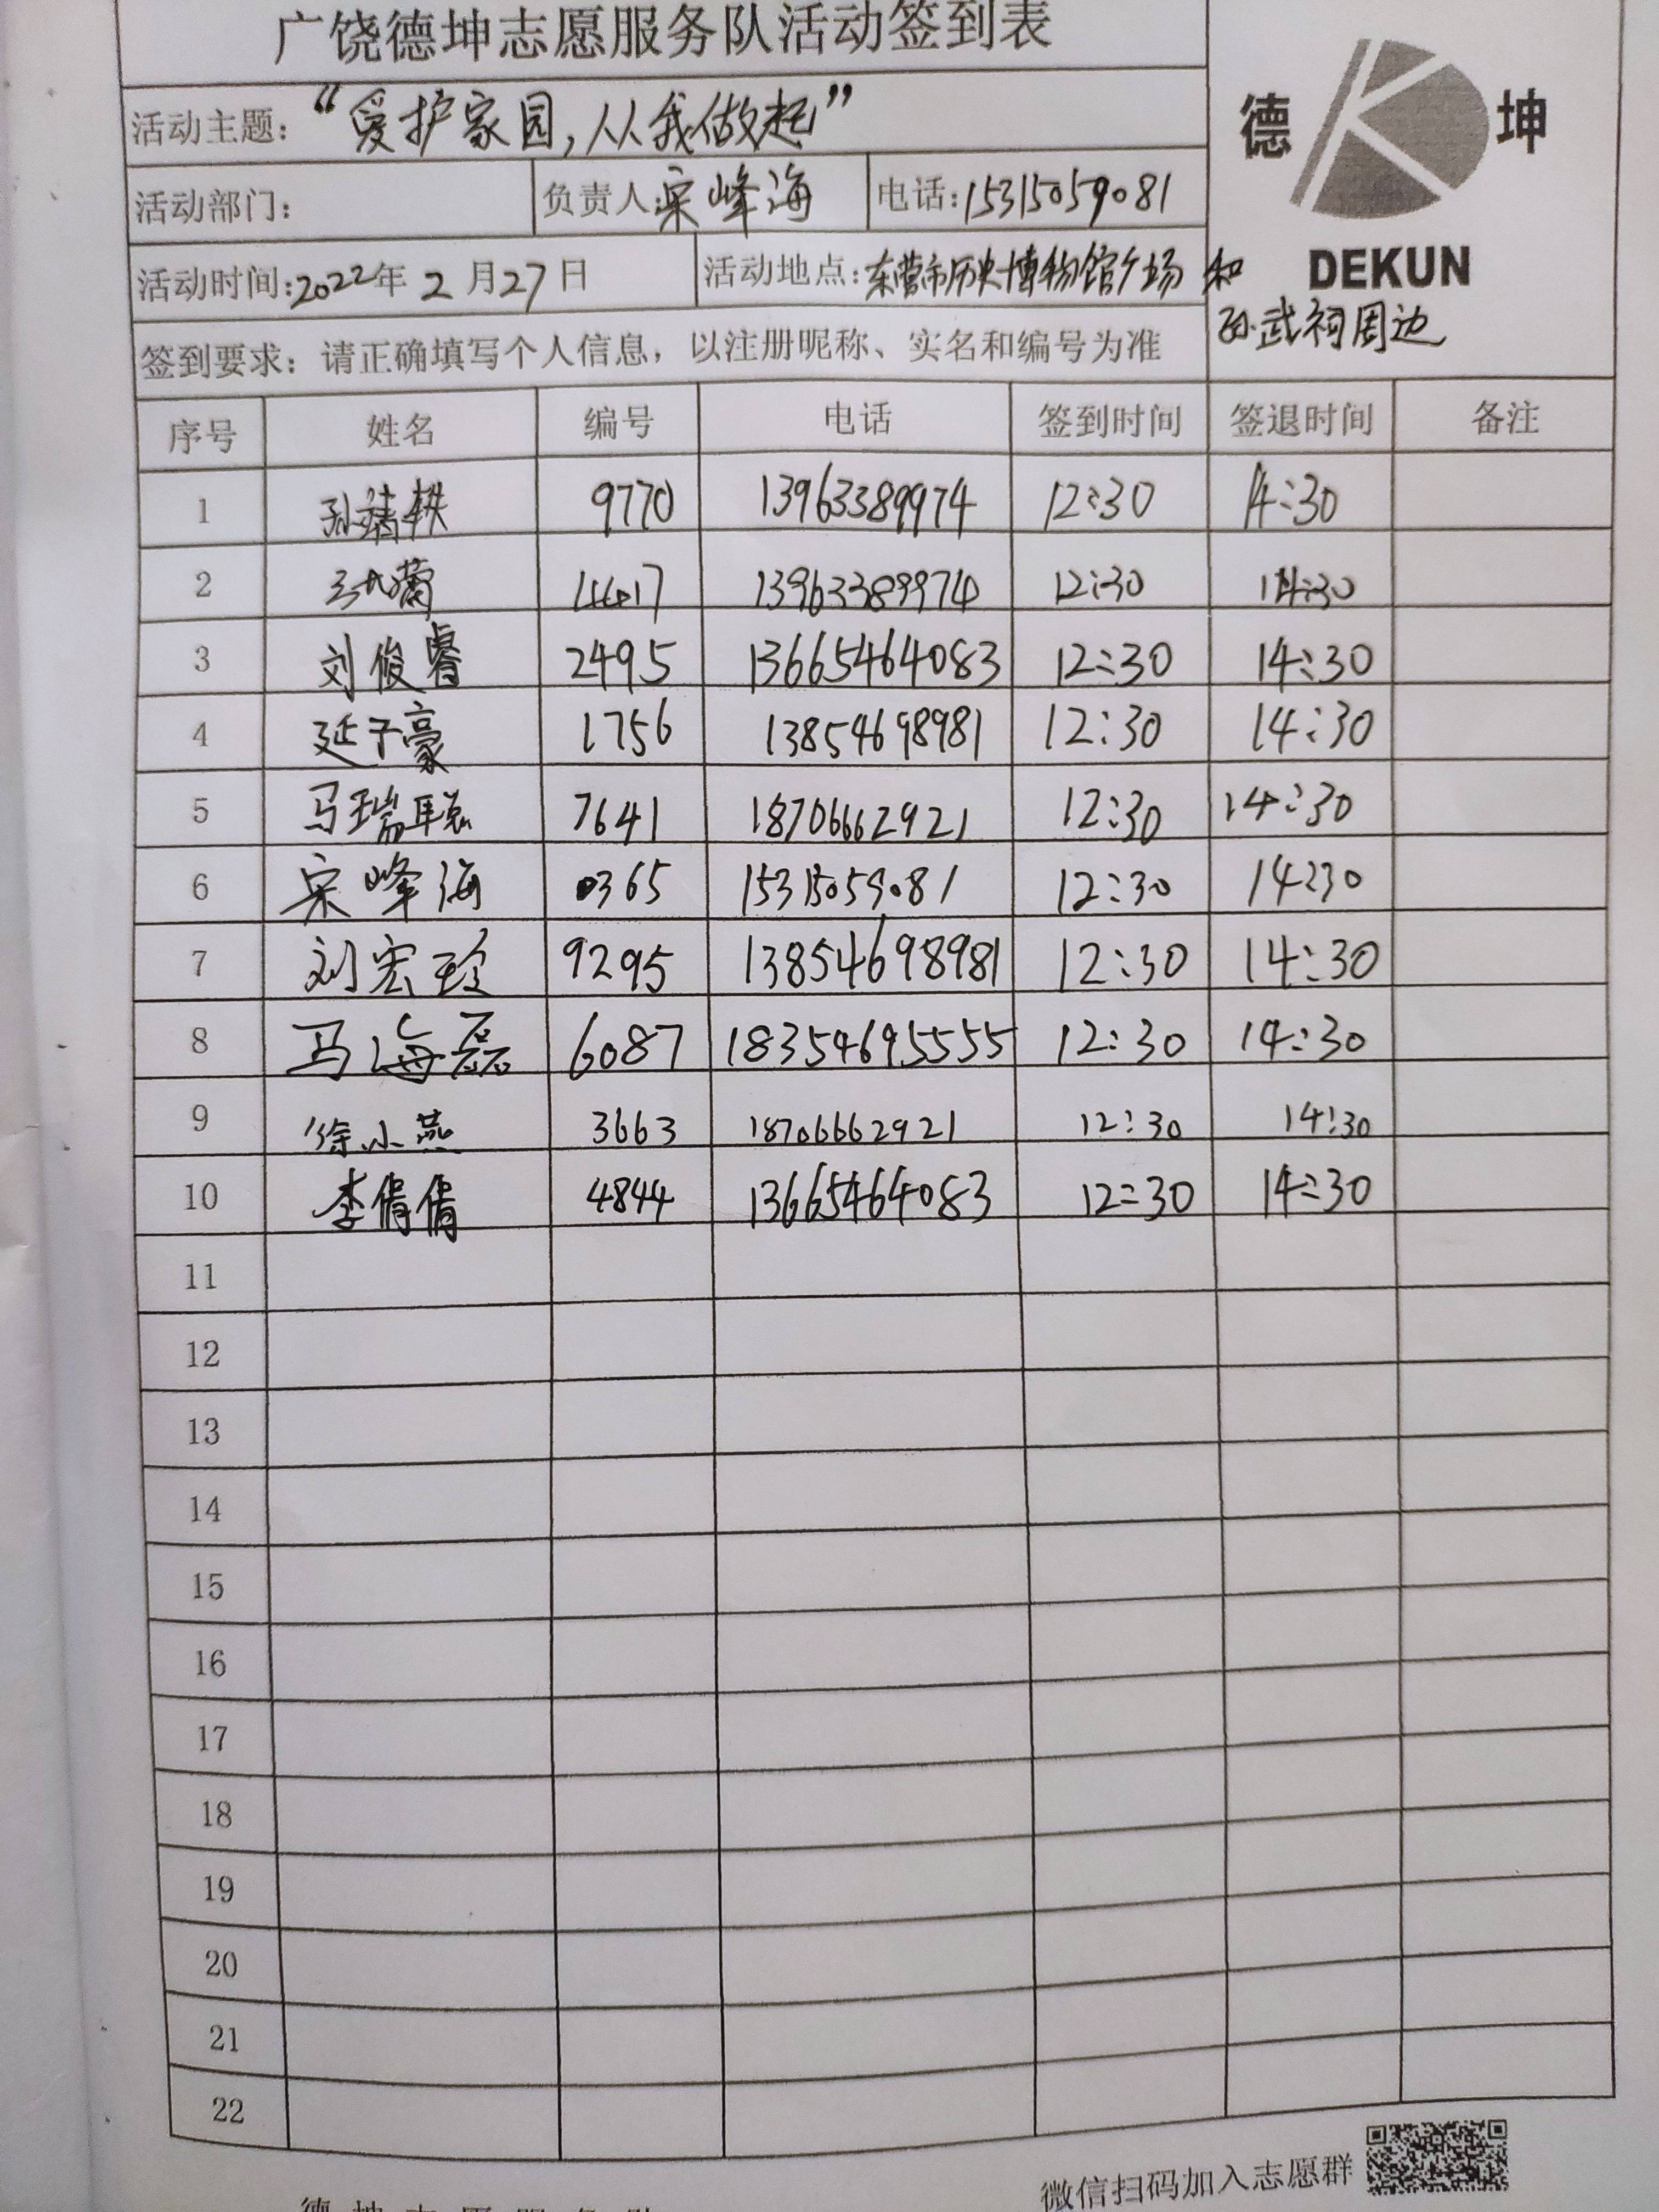 广饶德坤志愿服务队活动签到表
德 坤
DEKUN
活动主题：“爱护家园，从我做起”
活动部门： 负责人：宋峰海 电话：15315059081
活动时间：2022年2月27日 活动地点：东营市历史博物馆广场 和
孙武祠周边
签到要求：请正确填写个人信息，以注册昵称、实名和编号为准
序号 姓名 编号 电话 签到时间 签退时间 备注
1 孙靖轶 9770 13963389974 12:30 14:30
2 13963389974 12:30 14:30
3 刘俊睿 2495 13665464083 12:30 14:30
4 延子豪 1756 13854698981 12:30 14:30
5 马瑞聪 7641 18706662921 12:30 14:30
6 宋峰海 0365 15315059081 12:30 14:30
7 刘宏玲 9295 13854698981 12:30 14:30
8 马海磊 6087 18354695555 12:30 14:30
9 徐小燕 3663 18706662921 12:30 14:30
10 李倩倩 4844 13665464083 12:30 14:30
11
12
13
14
15
16
17
18
19
20
21
22
微信扫码加入志愿群